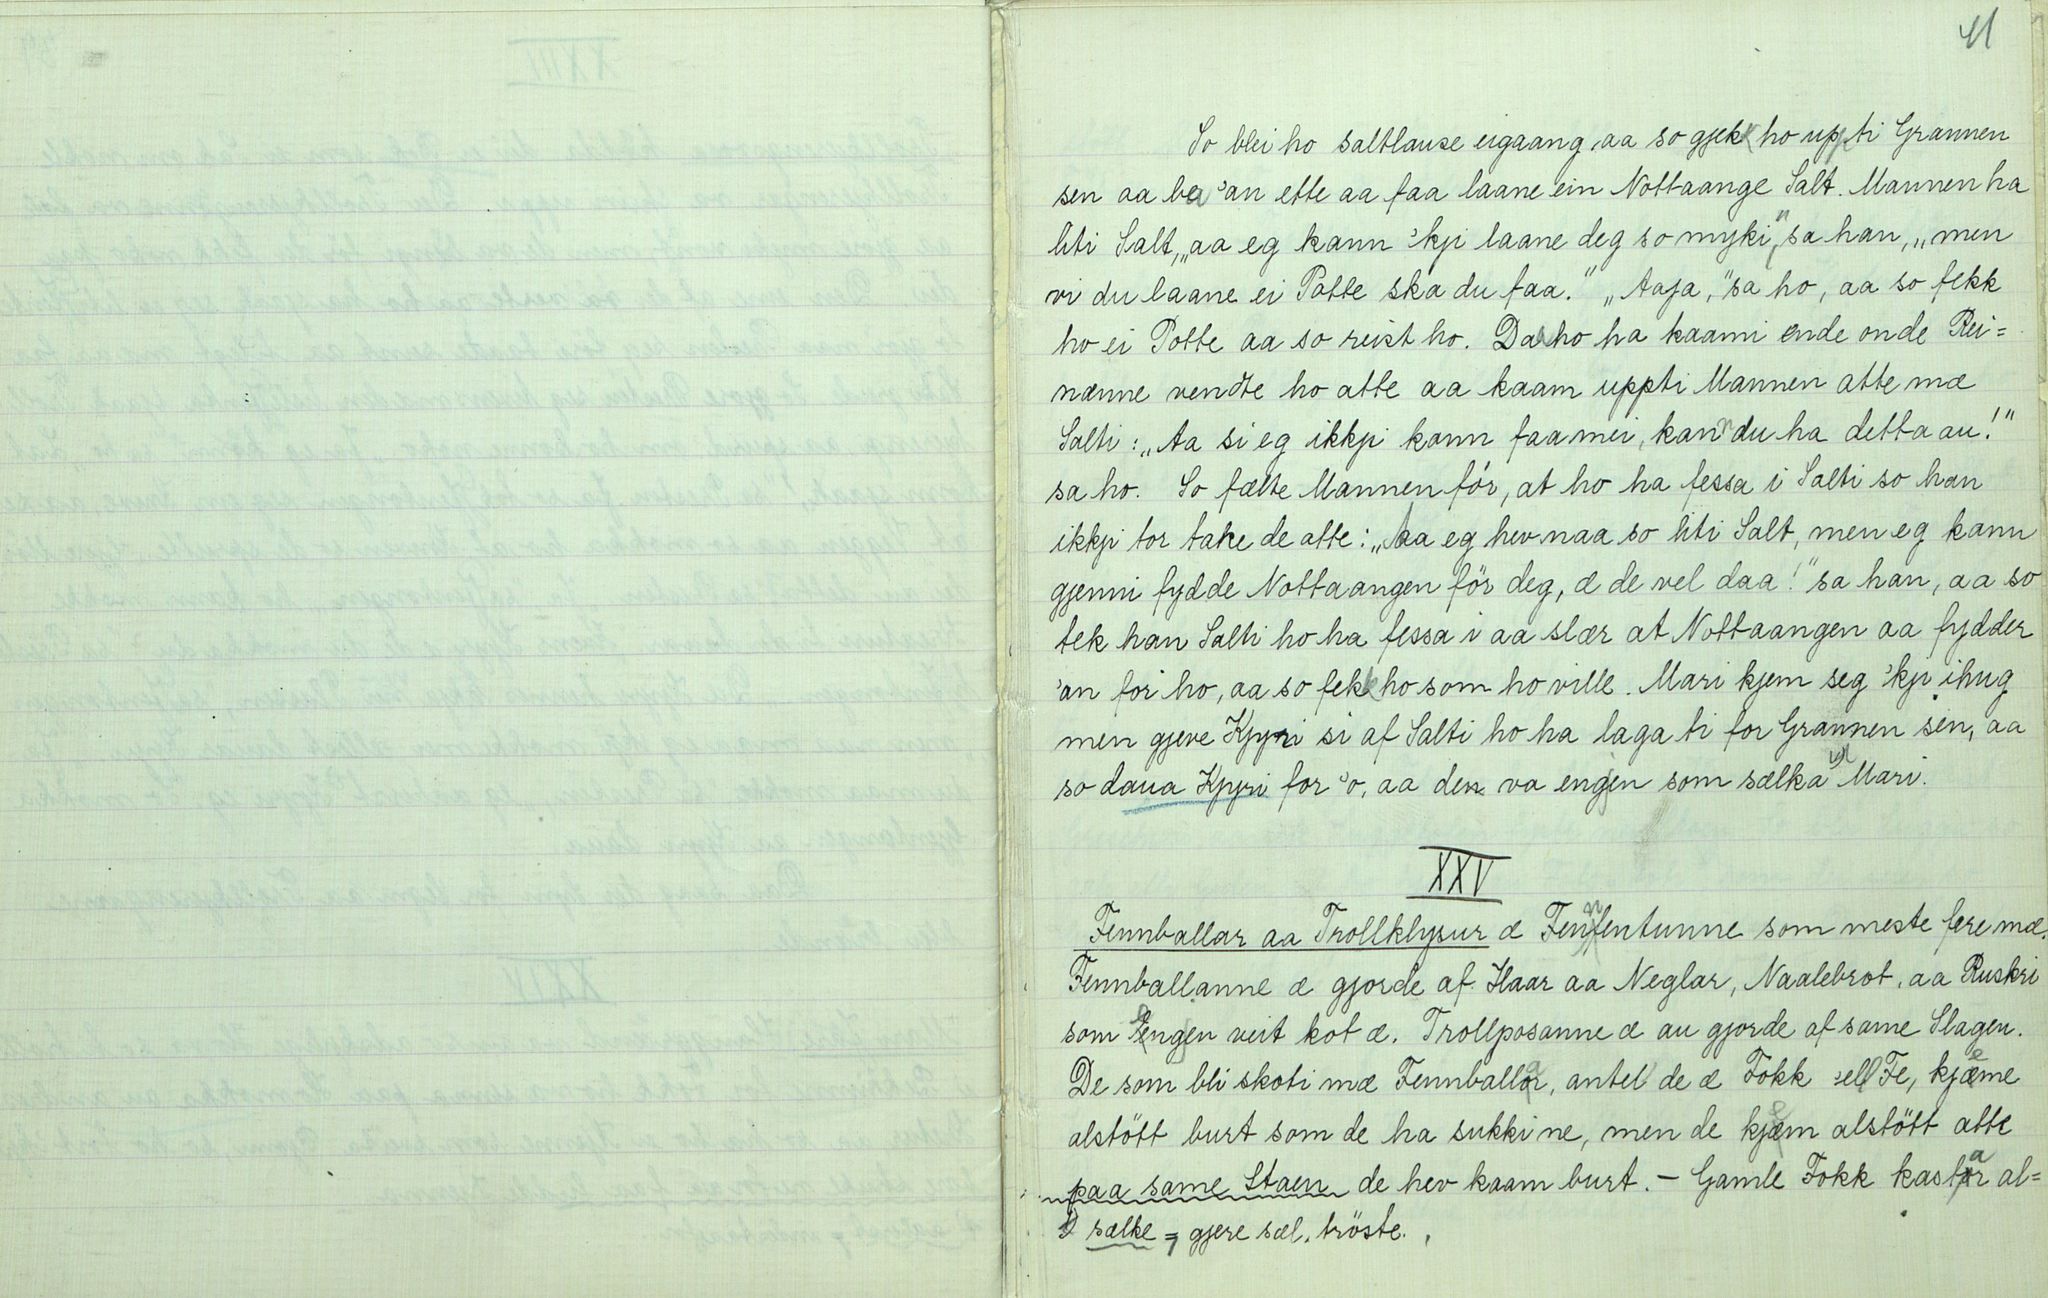 41
So blei ho saltlause eigaang, aa so gjek ho uppti Grannen
sen aa ba 'an ette aa faa laane ein Nottaange Salt. Mannen ha
liti Salt, „aa eg kann 'kji laane deg so myki," sa han, „men
vi du laane ei Potte ska du faa." „Aaja," sa ho, aa so fekk
ho ei Potte aa so reist ho. Da ho ha kaami ende onde Rei=
nænne vendte ho atte aa kaam uppti Mannen atte mæ
Salti: „Aa si eg ikkji kann faa mei, kann du ha detta au!"
sa ho. So fælte Mannen för, at ho ha fessa i Salti so han
ikkji tor take de atte: „Aa eg hev naa so liti Salt, men eg kann
gjenni fydde Nottaangen för deg, æ de vel daa!" sa han, aa so
tek han Salti ho ha fessa i aa slær at Nottaangen aa fydder
'an fori ho, aa so fekk ho som ho ville. Mari kjem seg 'kji ihug
men gjeve Kjyri si af Salti ho ha laga ti for Grannen sin, aa
so daua Kjyri for 'o, aa den va engjen som sælka 1) Mari.
XXV
Fennballar aa Trollklysur æ Fennfentunne som meste fere mæ.
Fennballanne æ gjorde af Haar aa Neglar, Naalebrot, aa Ruskri
som engen veit kot æ. Trollposanne æ au gjorde af same Slagen.
De som bli skoti mæ Fennballar, antel de æ Fokk ell Fe, kjeme
alstött burt som de ha sukki ne, men de kjem alstött atte
paa same Staen de hev kaam burt. — Gamle Fokk kastar al=
1) sælke = gjere sæl, tröste.